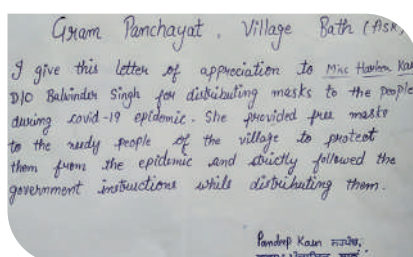 Gram Panchayat, Village Bath (Ask.
I give this letter of appreciation to Miss Harleen Kau
D/O Balwinder Singh for distributing masks to the people
during covid-19 epidemic. She provided free masks
to the needy people of the village to protect
them from the epidemic and strictly followed the
government instructions while distributing them.
Pandeep Kaur ਸਰਪੰਚ,